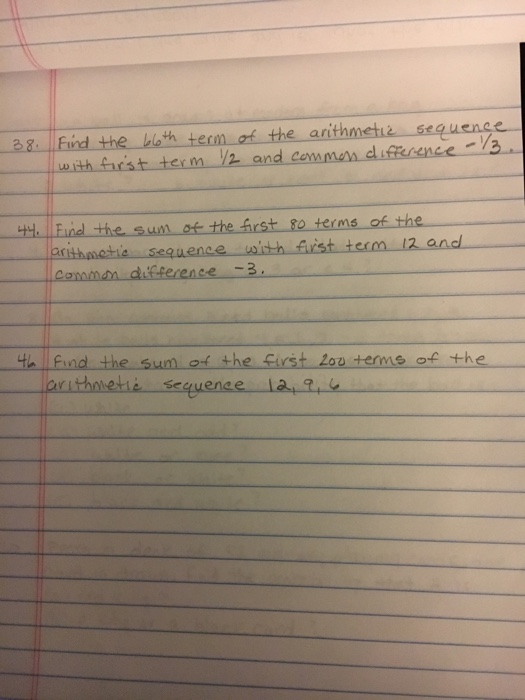 38. Find the 66th term of the arithmetic sequence
with first term 1/2 and common difference -1/3.
44. Find the sum of the first 80 terms of the
arithmetic sequence with first term 12 and
common difference -3.
46 Find the sum of the first 200 terms of the
arithmetic sequence 12, 9, 6